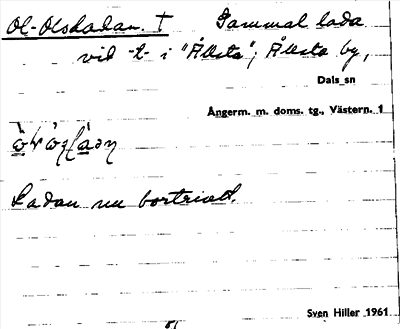 Ol-Olsladan. † Gammal lada
vid -t- i "Ållsta", Ållsta by,
Dals sn
Ångerm. m. doms. tg., Västern. 1
Ladan nu bortriven.
Sven Hiller 1961